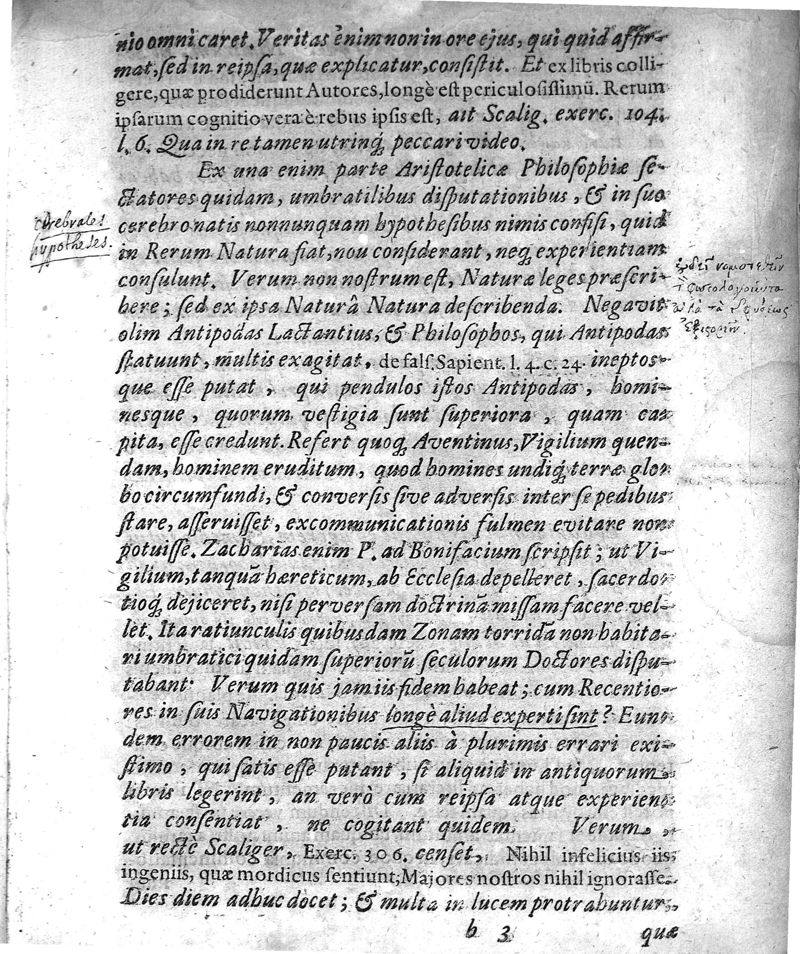 nio omni caret. Veritas enim non in ore ejus, qui quid affir-
mat, sed in reipsa, quæ explicatur, consistit. Et ex libris colli-
gere, quæ prodiderunt Autores, longè est periculosissimū. Rerum
ipsarum cognitio vera è rebus ipsis est, ait Scalig. exerc. 104.
l. 6. Qua in re tamen utrinq́; peccari video.
Ex una enim parte Aristotelicæ Philosophiæ se-
ctatores quidam, umbratilibus disputationibus, & in suo
cerebro natis nonnunquam hypothesibus nimis confisi, quid
in Rerum Natura fiat, non considerant, neq́; experientiam
consulunt. Verum non nostrum est, Naturæ leges præscri-
bere; sed ex ipsa Naturâ Natura describenda. Negavit
olim Antipodas Lactantius, & Philosophos, qui Antipodas
statuunt, multis exagitat, de fals. Sapient. l. 4. c. 24. ineptos-
que esse putat, qui pendulos istos Antipodas, homi-
nesque, quorum vestigia sunt superiora, quam ca-
pita, esse credunt. Refert quoq́; Aventinus, Vigilium quen-
dam, hominem eruditum, quod homines undiq́; terræ glo-
bo circumfundi, & conversis sive adversis inter se pedibus
stare, asseruisset, excommunicationis fulmen evitare non
potuisse. Zacharias enim P. ad Bonifacium scripsit; ut Vi-
gilium, tanquā hæreticum, ab Ecclesia depelleret, sacerdo-
tioq́; dejiceret, nisi perversam doctrinā missam facere vel-
let. Ita ratiunculis quibusdam Zonam torridā non habita-
ri umbratici quidam superiorū seculorum Doctores dispu-
tabant. Verum quis jam iis fidem habeat; cum Recentio-
res in suis Navigationibus longè aliud experti sint? Eun-
dem errorem in non paucis aliis à plurimis errari exi-
stimo, qui satis esse putant, si aliquid in antiquorum
libris legerint, an verò cum reipsa atque experien-
tia consentiat, ne cogitant quidem. Verum,
ut rectè Scaliger, Exerc. 306. censet, Nihil infelicius iis
ingeniis, quæ mordicus sentiunt; Majores nostros nihil ignorasse.
Dies diem adhuc docet; & multa in lucem protrahuntur,
b 3 quæ
cerebrales
hypotheses.